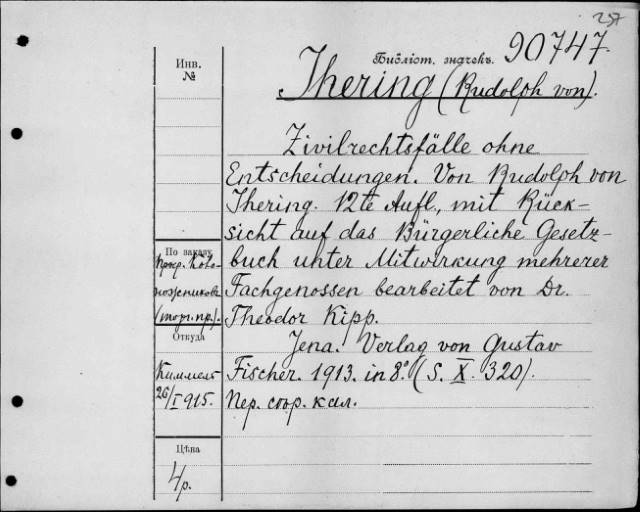 257
Библіот. значекъ. 90747.
Инв.
№
Jhering (Rudolph von).
Zivilrechtsfälle ohne
Entscheidungen. Von Rudolph von
Jhering. 12te Aufl., mit Rück-
sicht auf das Bürgerliche Gesetz-
buch unter Mitwirkung mehrerer
Fachgenossen bearbeitet von Dr.
Theodor Kipp.
Jena. Verlag von Gustav
Fischer. 1913. in 8° (S. X. 320).
Пер. соор. кал.
По заказу
проф. Ново-
(торг. пр.).
Откуда
Киммель
26/I 915.
Цѣна
4р.